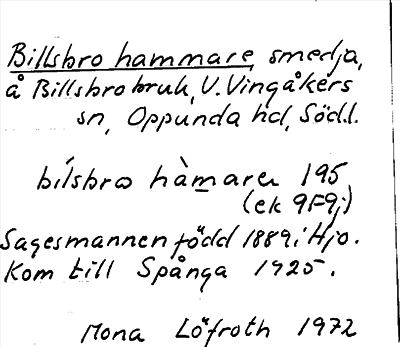 Billsbro hammare, smedja,
å Billsbro bruk, V. Vingåkers
sn, Oppunda hd, Södl.
bílsbrꙍ hàmarer 195
(ek 9F9j)
Sagesmannen född 1889 i Hjo.
Kom till Spånga 1925.
Mona Löfroth 1972